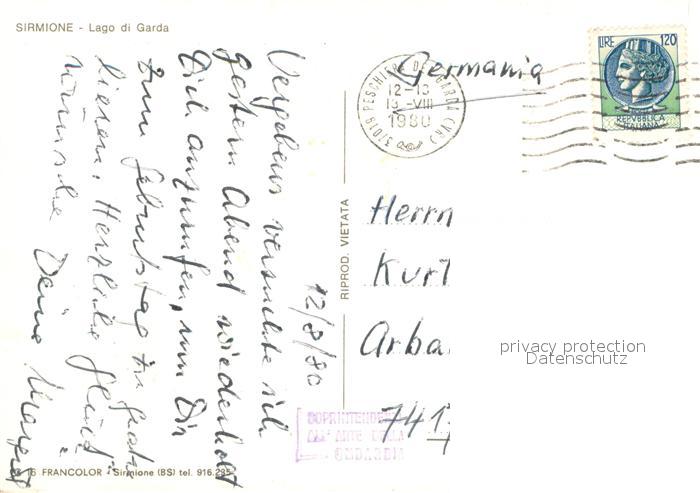 SIRMIONE - Lago di Garda
12/8/80
Vergebens versuchte ich
gestern Abend wiederholt
Dich anzurufen, um Dir
zum Geburtstag zu gratu
lieren. Herzliche Glück
wünsche Deine
RIPROD. VIETATA
FRANCOLOR - Sirmione (BS) tel. 916.295
37019 PESCHIERA DEL GARDA (VR)
12-13
13-VIII
1980
LIRE 120
REPVBBLICA
ITALIANA
Germania
Herrn
Kurt
Arba
741
privacy protection
Datenschutz
SOPRINTENDE
ALL'ARTE DELLA